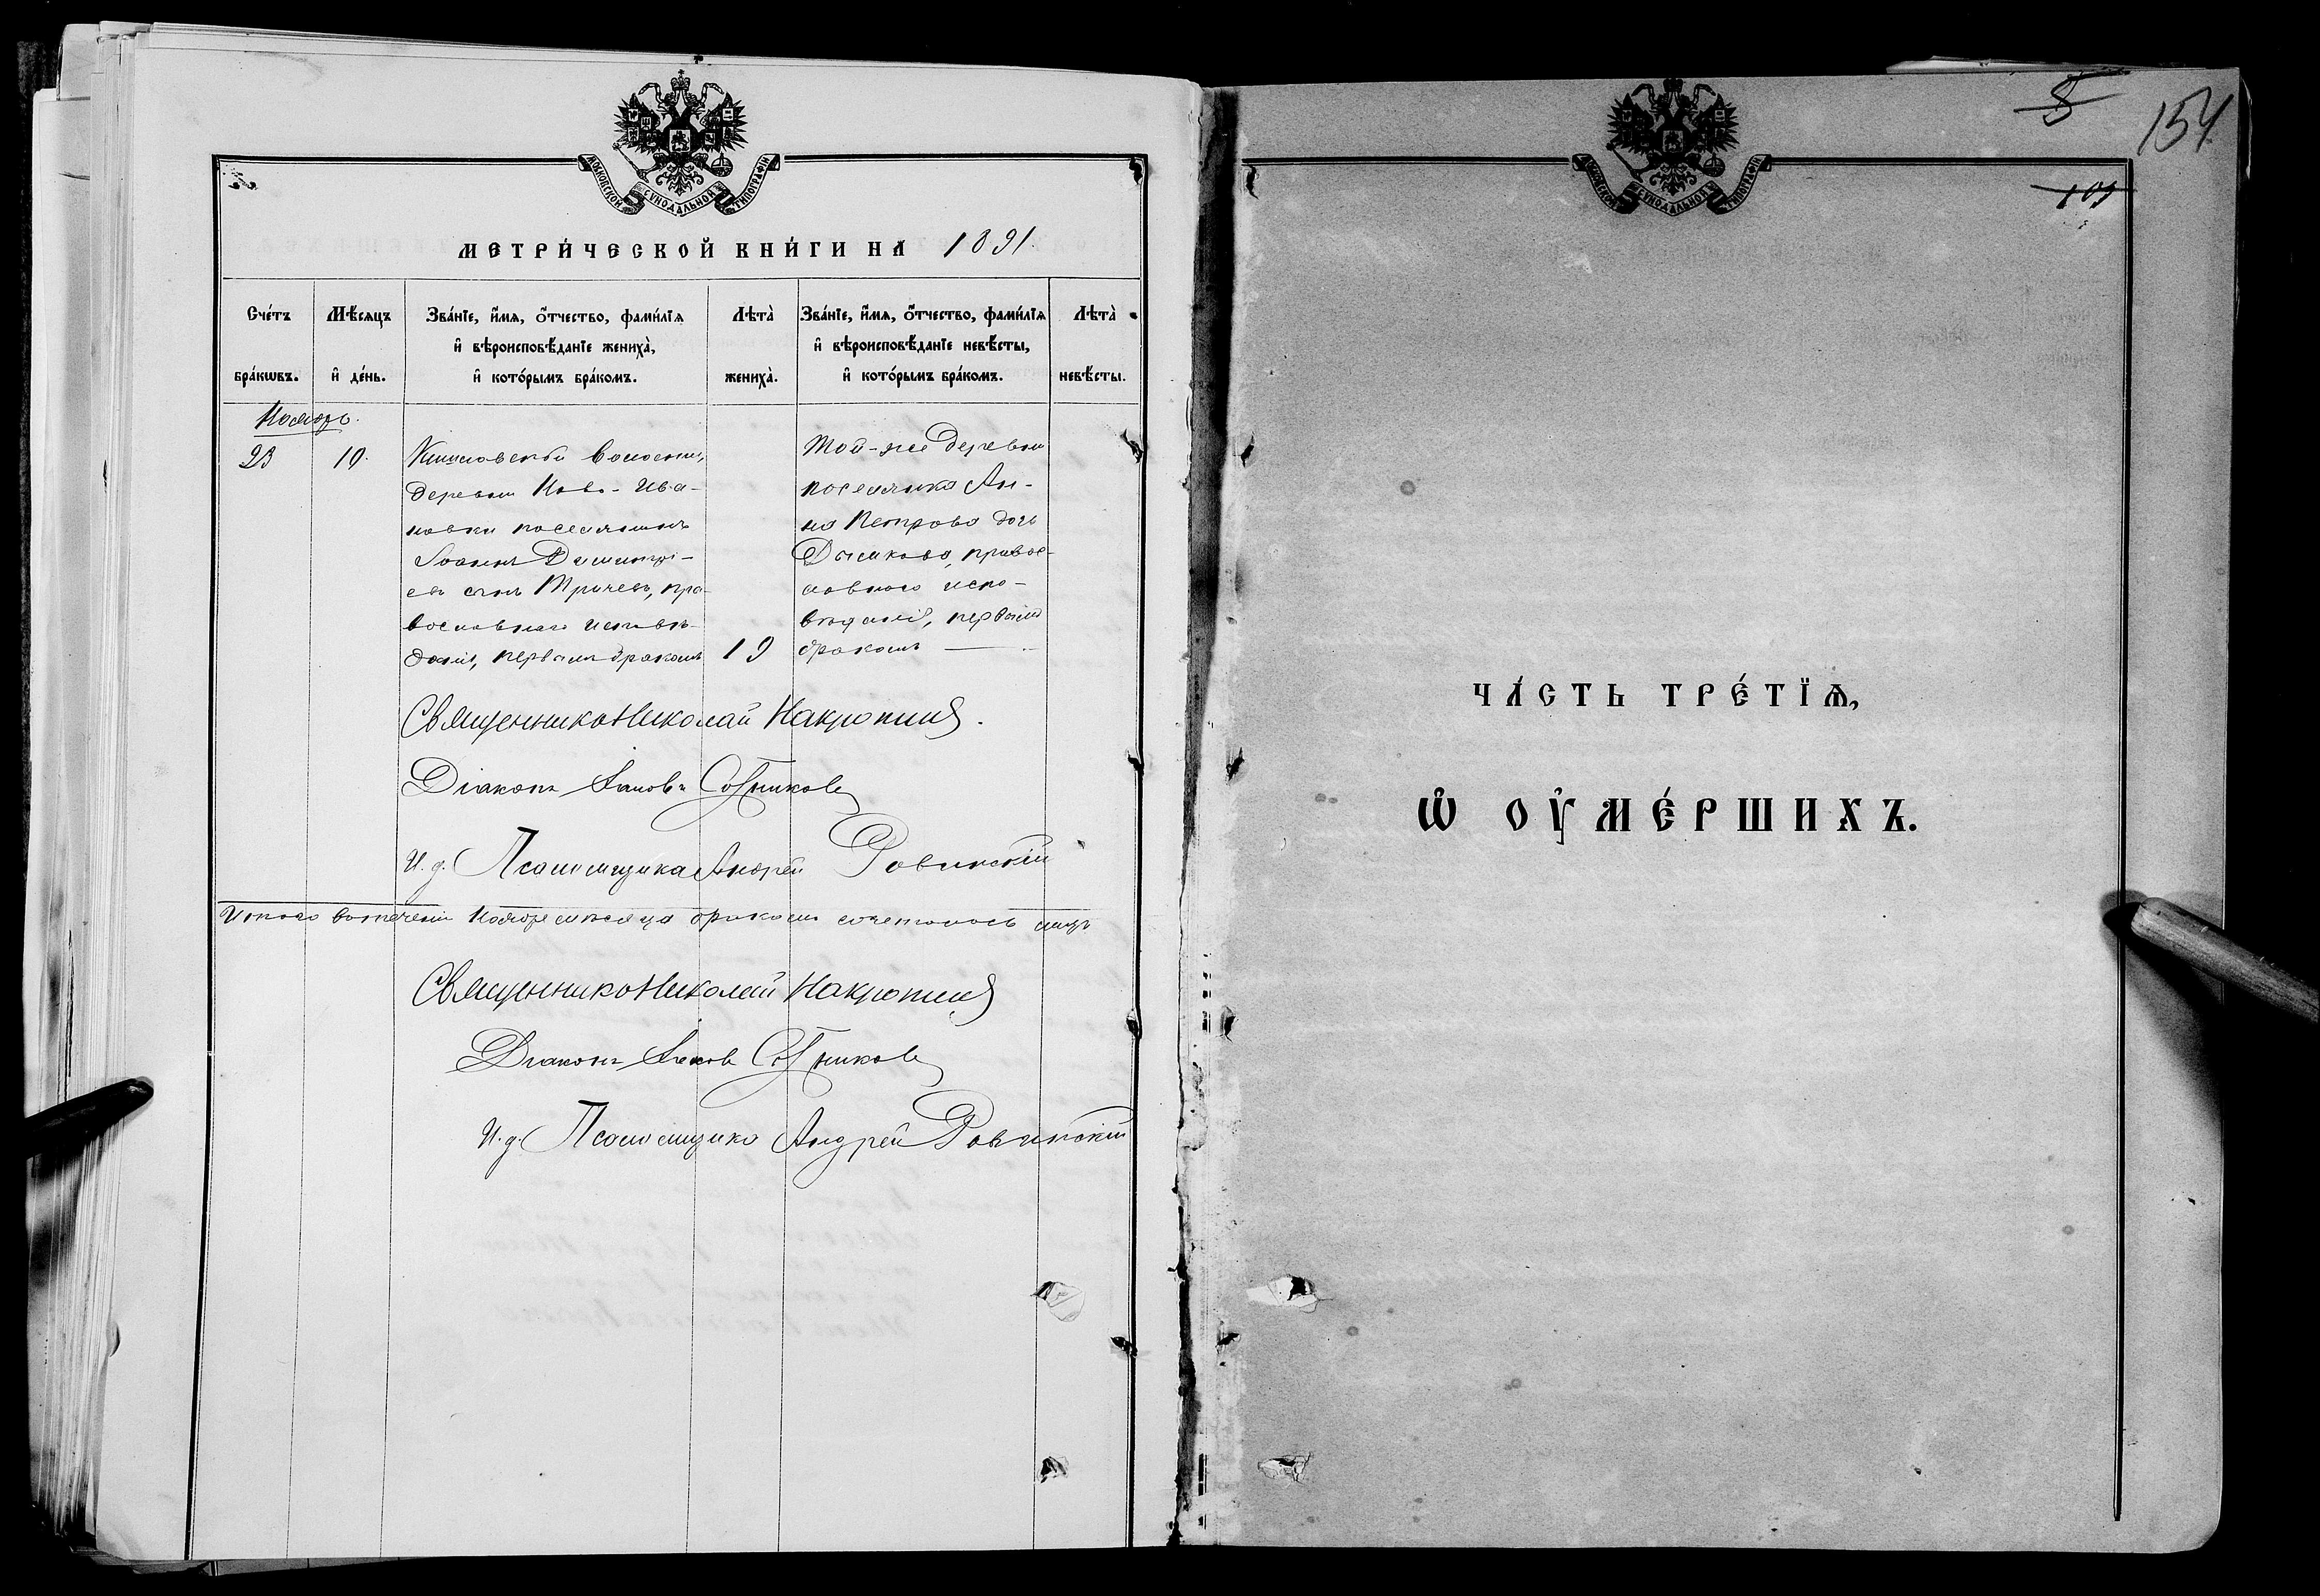 МОСКОВСКОЙ СѴНОДАЛЬНОЙ ТИПОГРАФІИ
МЕТРИ́ЧЕСКОЙ КНИ́ГИ НА 1891.
Сче́тъ бра́кѡвъ.
Мѣ́сяцъ и҆ де́нь.
Зва́нїе, и҆́мѧ, ѻ҆́тчество, фами́лїѧ
и҆ вѣроисповѣ́данїе жениха̀,
и҆ кото́рымъ бра́комъ.
Лѣта̀ жениха̀.
Зва́нїе, и҆́мѧ, ѻ҆́тчество, фами́лїѧ
и҆ вѣроисповѣ́данїе невѣ́сты,
и҆ кото́рымъ бра́комъ.
Лѣта̀ невѣ́сты.
Ноябрь.
23
10.
волости,
деревни Ново-Ива-
новки поселянинъ
Іоаннъ Димитрі-
евъ сынъ Тричевъ, пра-
вославнаго исповѣ-
данія, первымъ бракомъ
19
Той-же деревни
поселянка Ан-
на Петрова дочь
Дымкова, правос-
лавнаго испо-
вѣданія, первымъ
бракомъ
Священникъ Николай Накропинъ.
Діаконъ Іаковъ Сотниковъ
И. д. Псаломщика Андрей Ровинскій
Итого въ теченіи Ноября мѣсяца бракомъ сочеталось лицъ
Священникъ Николай Накропинъ
Діаконъ Іаковъ Сотниковъ
И. д. Псаломщика Андрей Ровинскій
МОСКОВСКОЙ СѴНОДАЛЬНОЙ ТИПОГРАФІИ
5
154
109
ЧА́СТЬ ТРЕ́ТЇѦ,
Ѡ҆ ОУ҆МЕ́РШИХЪ.